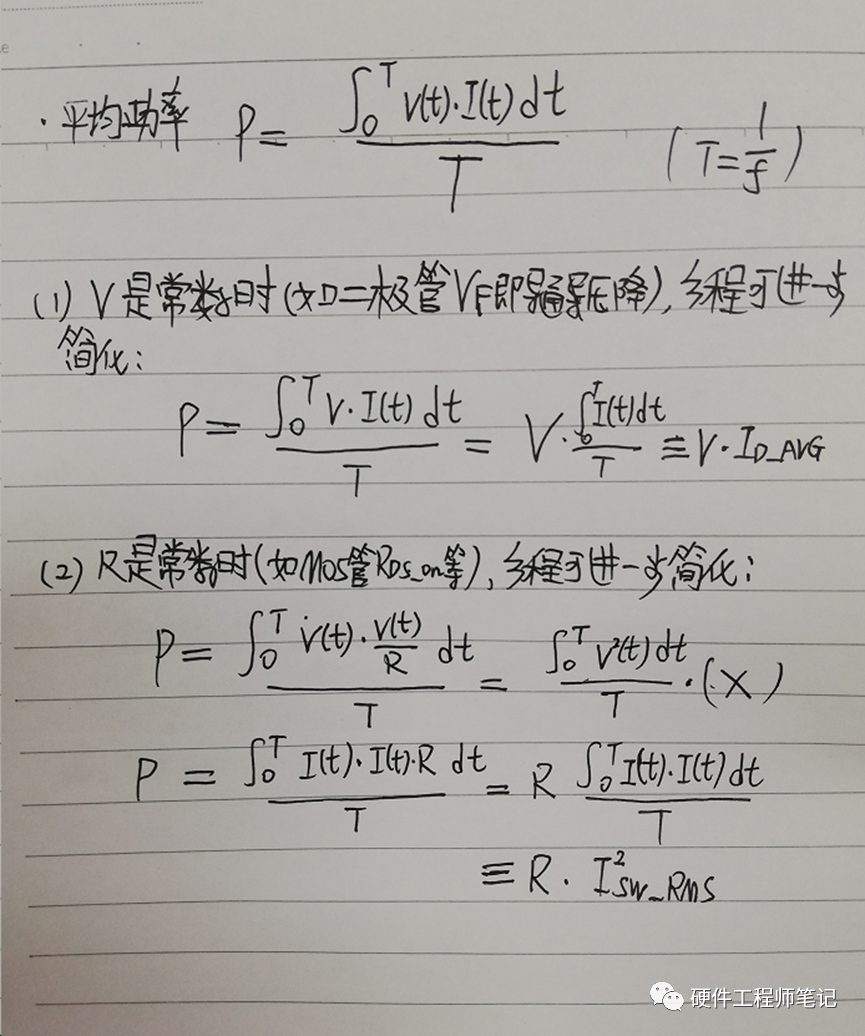 ·平均功率 P = ∫₀ᵀ V(t)·I(t) dt / T (T = 1/f)
(1) V是常数时(如D二极管VF即导通压降),方程可进一步
简化:
P = ∫₀ᵀ V·I(t) dt / T = V·∫₀ᵀ I(t) dt / T ≡ V·I_D_AVG
(2) R是常数时(如MOS管RDS_on等),方程可进一步简化:
P = ∫₀ᵀ V(t)·V(t)/R dt / T = ∫₀ᵀ V²(t) dt / T ·(X)
P = ∫₀ᵀ I(t)·I(t)·R dt / T = R ∫₀ᵀ I(t)·I(t) dt / T
≡ R·I²_SW_RMS
硬件工程师笔记